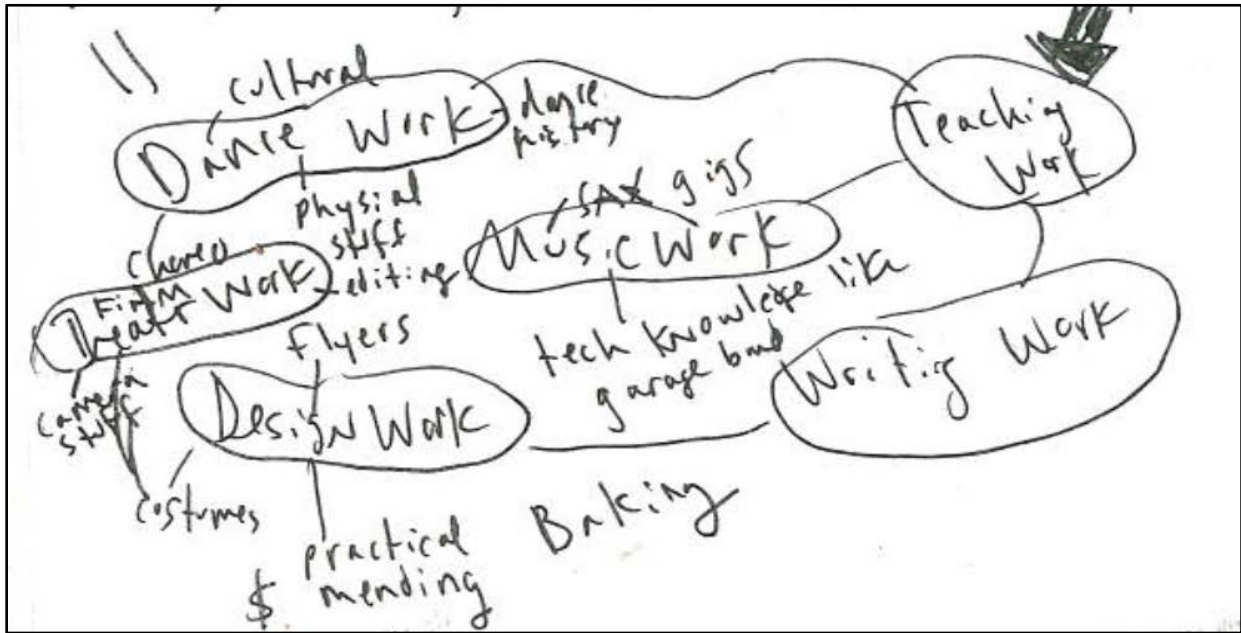 cultural
Dance Work
dance
history
Teaching
Work
physical
stuff
SAX gigs
Music Work
choreo
Film
Theatr Work
editing
Flyers
tech knowledge like
garage band
Writing Work
camera
stuff
Design Work
costumes
practical
$ mending
Baking